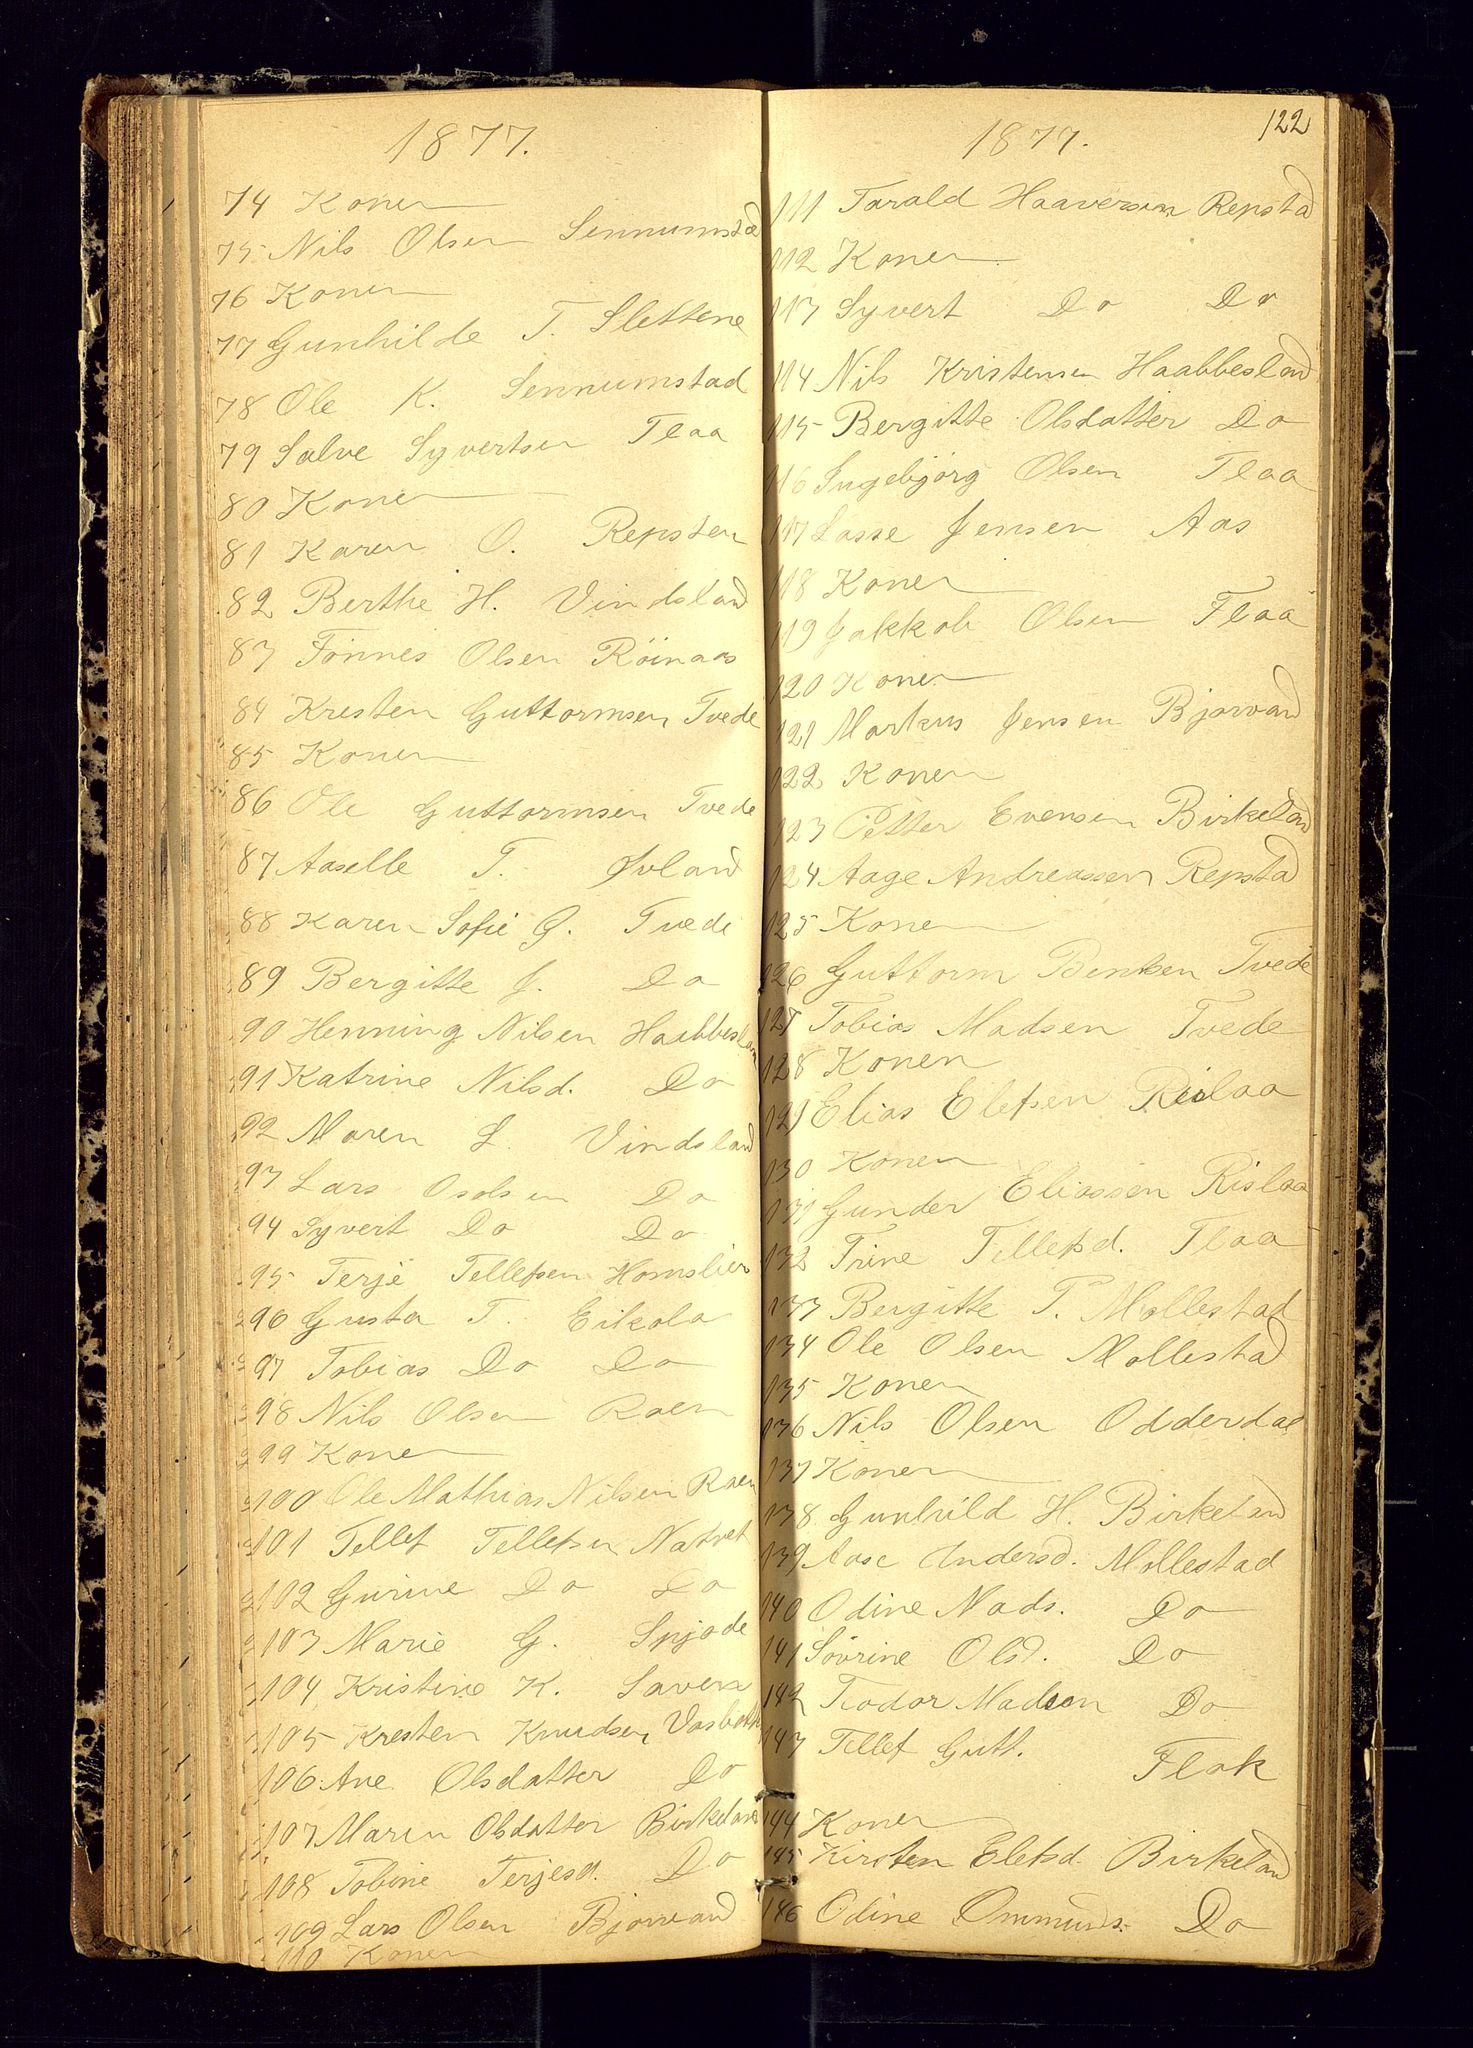 1877.
74 Konen
75 Nils Olsen Sennumstad
76 Konen
77 Gunhilde T. Slettene
78 Ole K. Sennumstad
79 Salve Syvertsen Flaa
80 Konen
81 Karen O. Repsten
82 Berthe H. Vindsland
83 Tönnes Olsen Röinaas
84 Kresten Guttormsen Tvede
85 Konen
86 Ole Guttormsen Tvede
87 Aaselle T. Øvland
88 Karen Sofie G. Tvede
89 Bergitte J. Do
90 Henning Nilsen Haabbesland
91 Katrine Nilsd. Do
92 Maren L. Vindsland
93 Lars Osolsen Do
94 Syvert Do Do
95 Terje Tellefsen Homslien
96 Gusta T. Eikela
97 Tobias Do Do
98 Nils Olsen Raen
99 Konen
100 Ole Mathias Nilsen Raen
101 Tellef Tellefsen Natvet
102 Gurine Do Do
103 Marie G. Spjode
104 Kristine K. Saven
105 Kresten Knudsen
106 Ane Olsdatter Do
107 Maren Olsdatter Birkeland
108 Tobine Terjesd. Do
109 Lars Olsen Bjorvand
110 Konen
122
1877.
111 Tarald Haaversen Repstad
112 Konen
113 Syvert Do Do
114 Nils Kristensen Haabbesland
115 Bergitte Olsdatter Do
116 Ingebjörg Olsen Flaa
117 Lasse Jensen Aas
118 Konen
119 Jakkob Olsen Flaa
120 Konen
121 Markus Jensen Bjorvand
122 Konen
123 Petter Evensen Birkeland
124 Aage Andreassen Repstad
125 Konen
126 Guttorm Bentsen Tvede
127 Tobias Madsen Tvede
128 Konen
129 Elias Elefsen Rislaa
130 Konen
131 Gunder Eliassen Rislaa
132 Trine Tellefsd. Flaa
133 Bergitte T. Mollestad
134 Ole Olsen Mollestad
135 Konen
136 Nils Olsen Odderdal
137 Konen
138 Gunhild H. Birkeland
139 Aase Andersd. Mollestad
140 Odine Mads. Do
141 Sövrine Olsd. Do
142 Teodor Madsen Do
143 Tellef Gutt. Flak
144 Konen
145 Kirsten Elefsd. Birkeland
146 Odine Ommunds. Do